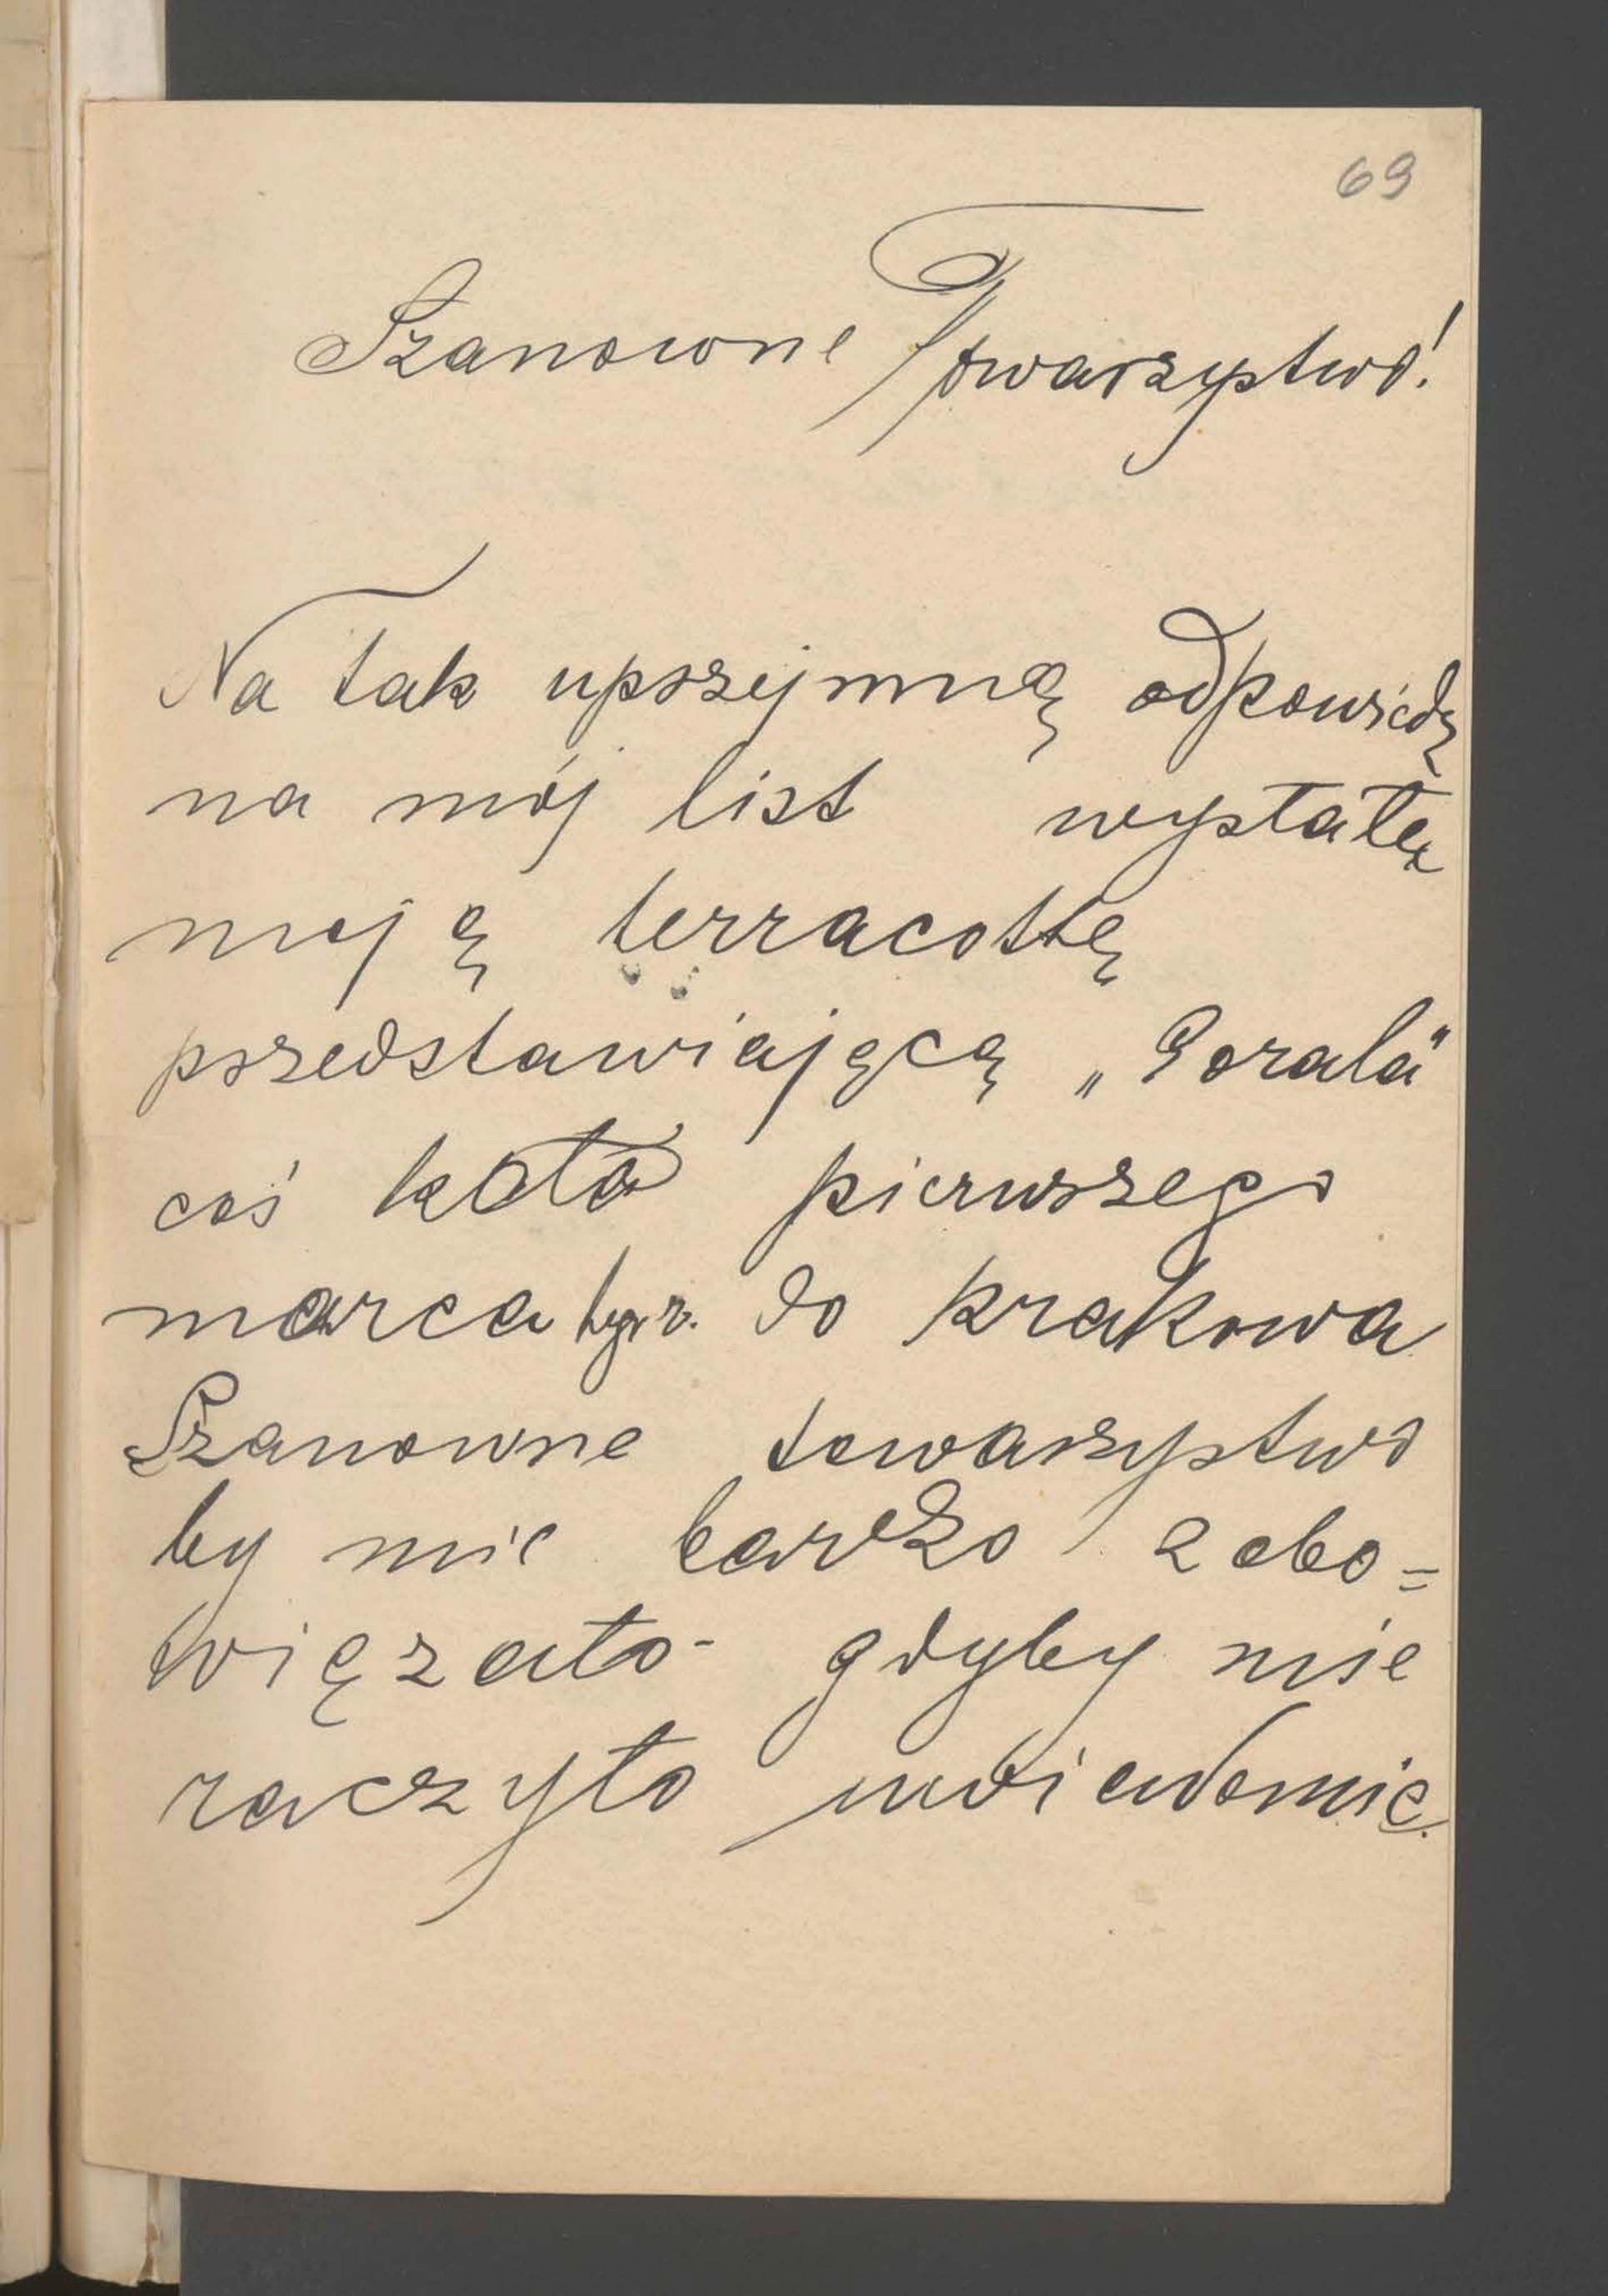 69
Szanowne Towarzystwo!
Na tak uprzejmną odpowiedz
na mój list wysłałę
moją terracottę
przedstawiającą „Gorala"
coś koło pierwszego
marca b.r. do Krakowa
Szanowne towarzystwo
by mie bardzo zobo=
więzało- gdyby mie
raczyło uwiadomic.